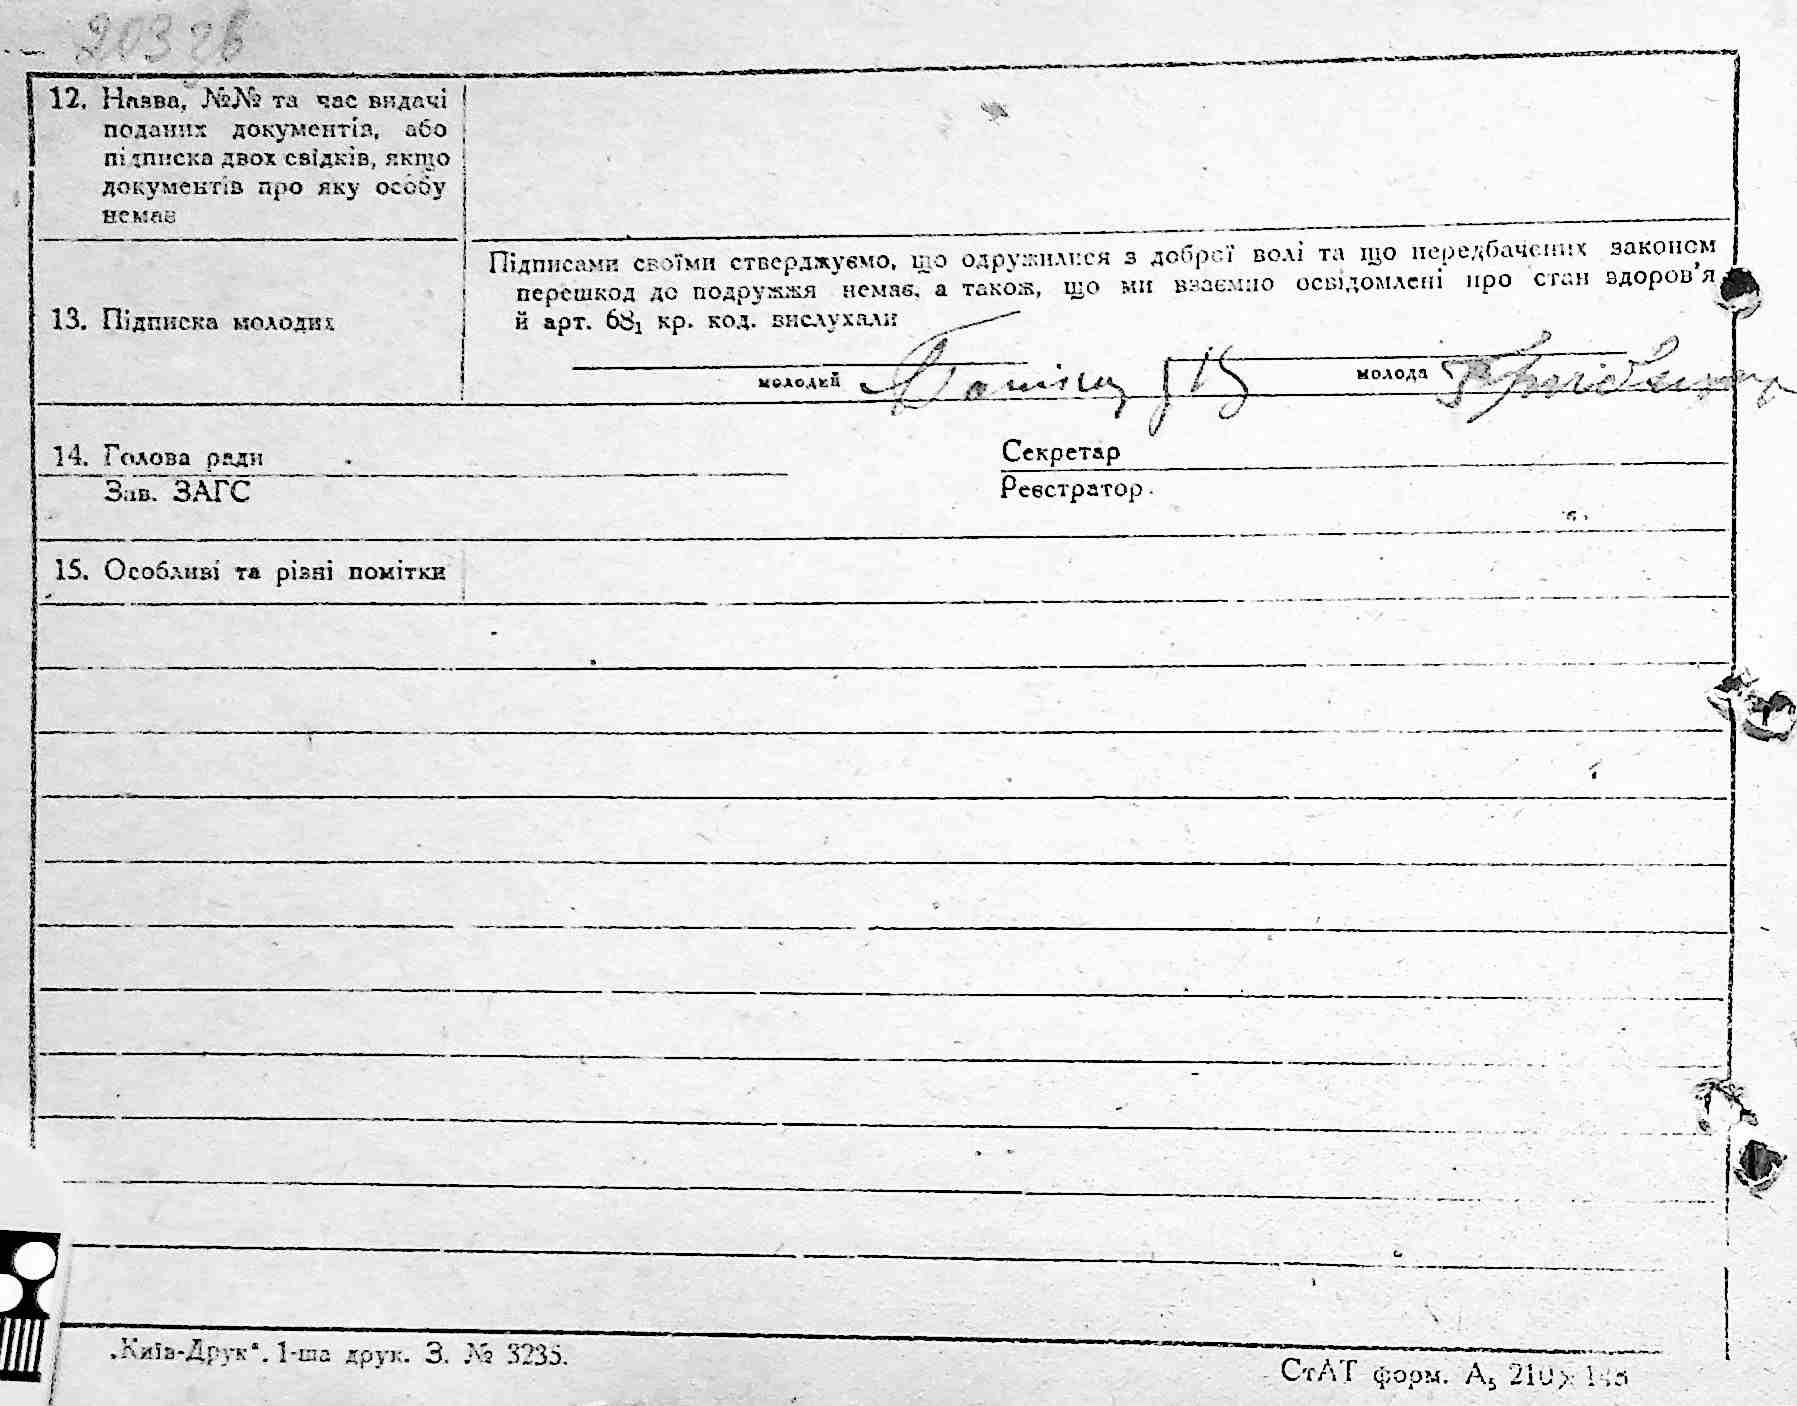 203 зв
12. Назва, №№ та час видачі
поданих документів, або
підписка двох свідків, якщо
документів про яку особу
немає
13. Підписка молодих
Підписами своїми стверджуємо, що одружилися з доброї волі та що передбачених законом
перешкод до подружжя немає, а також, що ми взаємно освідомлені про стан здоров'я
й арт. 68₁ кр. код. вислухали
молодий
молода
14. Голова ради
Секретар
Зав. ЗАГС
Реєстратор.
15. Особливі та різні помітки
„Київ-Друк“. 1-ша друк. З. № 3235.
СтАТ форм. А₅ 210 × 148